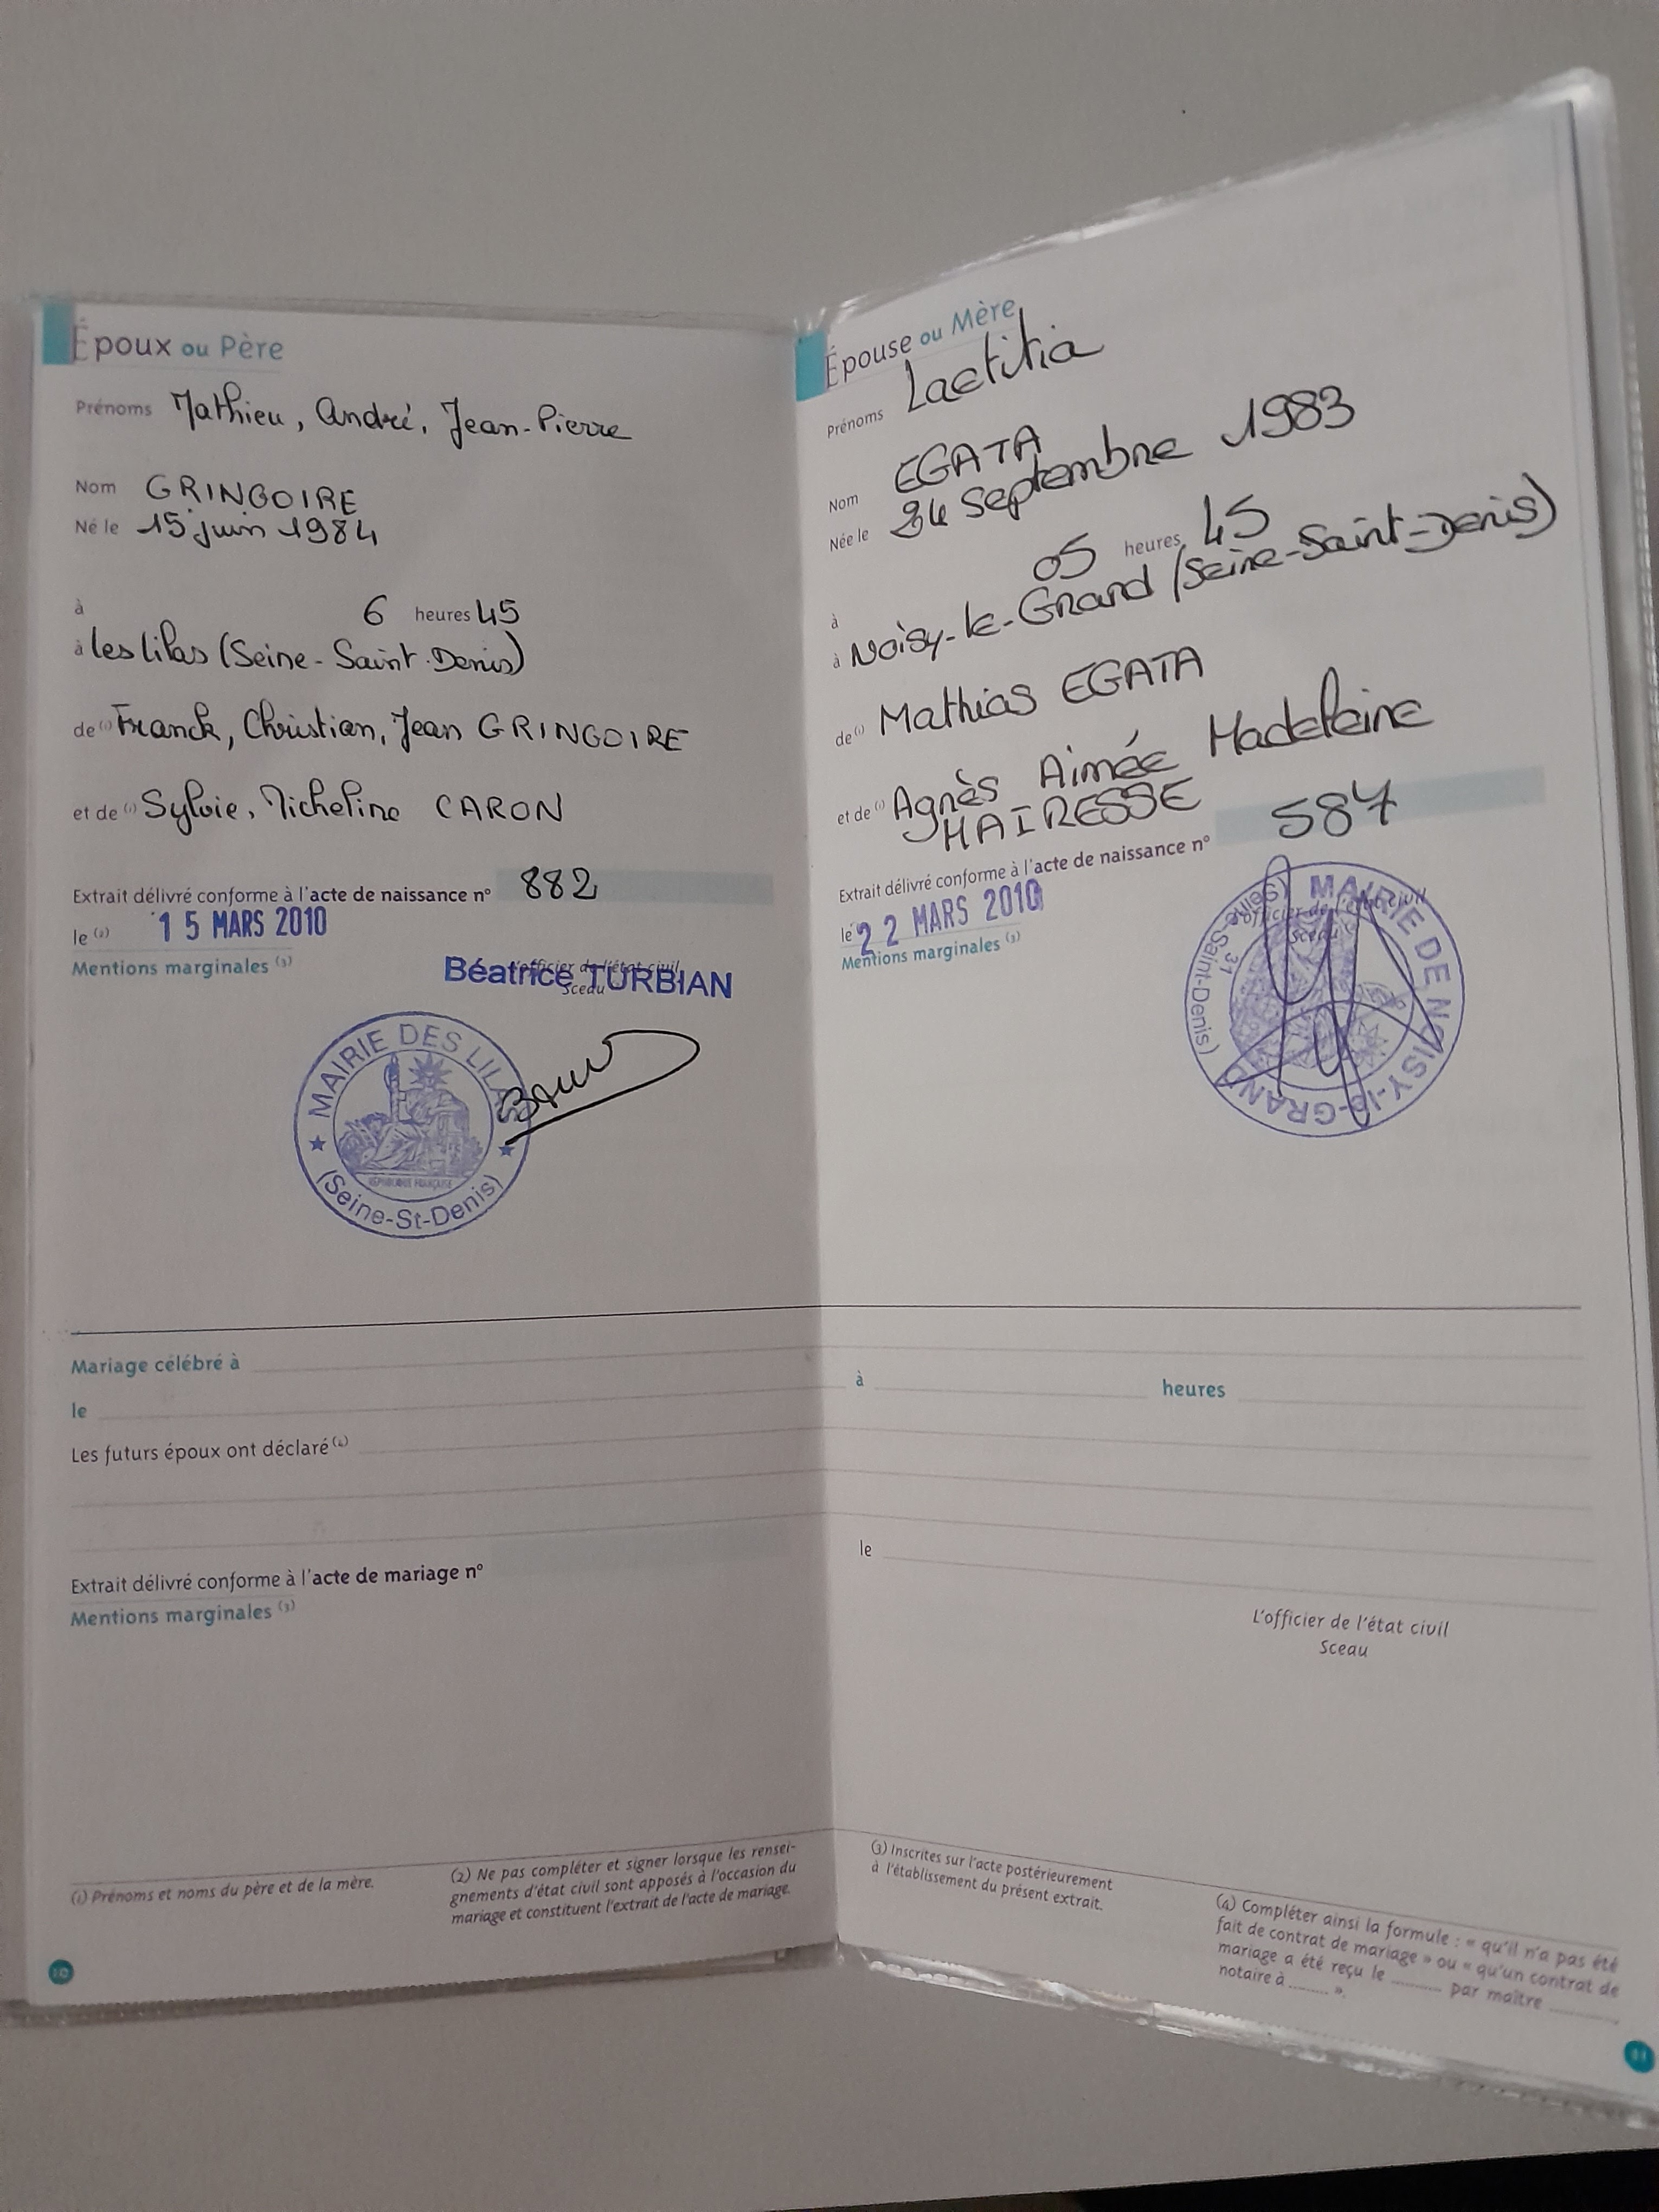 Époux ou Père
Prénoms Mathieu, André, Jean-Pierre
Nom GRINGOIRE
Né le 15 juin 1984
à 6 heures 45
à les lilas (Seine-Saint-Denis)
de (1) Franck, Christian, Jean GRINGOIRE
et de (1) Sylvie, Micheline CARON
Extrait délivré conforme à l'acte de naissance n° 882
le (2) 15 MARS 2010
Mentions marginales (3)
L'officier de l'état civil
Béatrice TURBIAN
Sceau
MAIRIE DES LILAS
RÉPUBLIQUE FRANÇAISE
(Seine-St-Denis)
Épouse ou Mère
Prénoms Laetitia
Nom EGATA
Née le 24 Septembre 1983
à 05 heures 45
à Noisy-le-Grand (Seine-Saint-Denis)
de (1) Mathias EGATA
et de (1) Agnès Aimée Madeleine
MAIRESSE
Extrait délivré conforme à l'acte de naissance n° 587
le 22 MARS 2010
Mentions marginales (3)
L'officier de l'état civil
Sceau
MAIRIE DE NOISY-le-GRAND
(Seine-Saint-Denis)
31
Mariage célébré à
le à heures
Les futurs époux ont déclaré (4)
Extrait délivré conforme à l'acte de mariage n° le
Mentions marginales (3)
L'officier de l'état civil
Sceau
(1) Prénoms et noms du père et de la mère.
(2) Ne pas compléter et signer lorsque les rensei-
gnements d'état civil sont apposés à l'occasion du
mariage et constituent l'extrait de l'acte de mariage.
(3) Inscrites sur l'acte postérieurement
à l'établissement du présent extrait.
(4) Compléter ainsi la formule : « qu'il n'a pas été
fait de contrat de mariage » ou « qu'un contrat de
mariage a été reçu le .......... par maître ..........
notaire à ........ ».
10
11